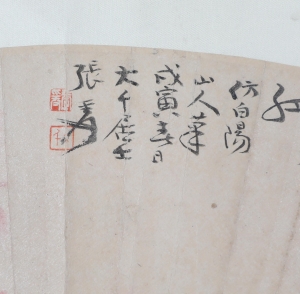 仿白陽
山人筆
戊寅春日
大千居士
張爰